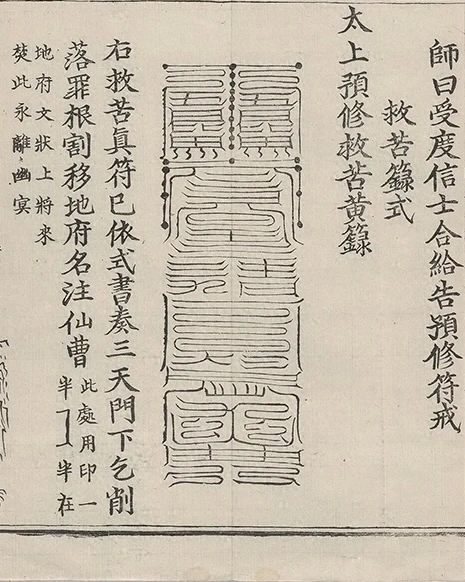 師曰受度信士合給告預修符戒
救苦籙式
太上預修救苦黄籙
右救苦真符已依式書奏三天門下乞削
落罪根割移地府名注仙曹
此處用印一
半
半在
地府文狀上將來
焚此永離幽冥